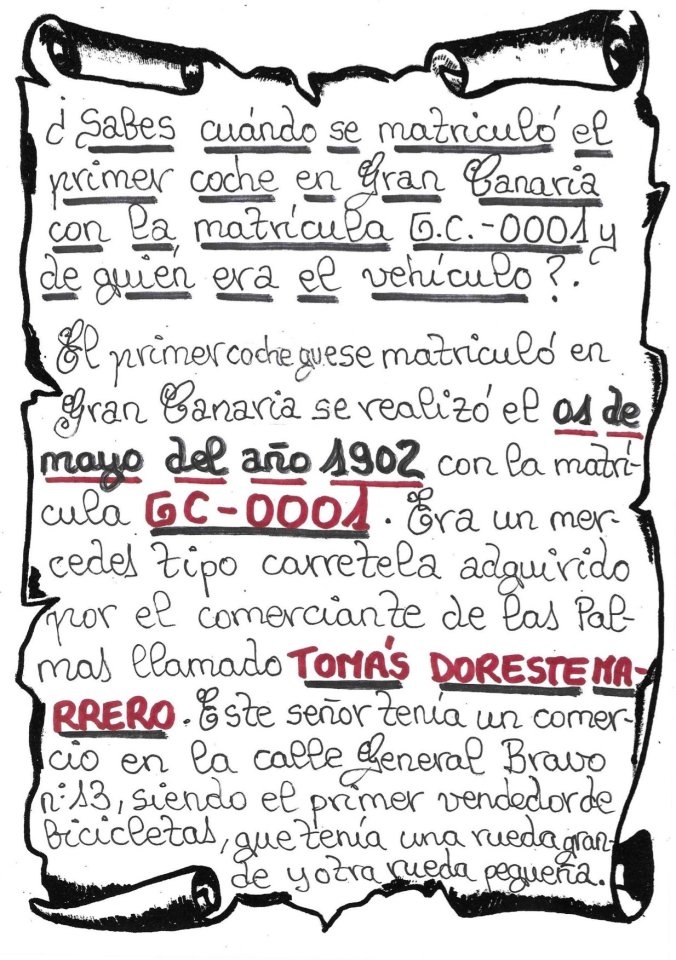 ¿Sabes cuándo se matriculó el
primer coche en Gran Canaria
con la matrícula G.C.-0001 y
de quién era el vehículo?.
El primer coche que se matriculó en
Gran Canaria se realizó el 01 de
mayo del año 1902 con la matrí-
cula GC-0001. Era un mer-
cedes tipo carretela adquirido
por el comerciante de las Pal-
mas llamado TOMÁS DORESTE MA-
RRERO. Este señor tenía un comer-
cio en la calle General Bravo
nº 13, siendo el primer vendedor de
bicicletas, que tenía una rueda gran-
de y otra rueda pequeña.